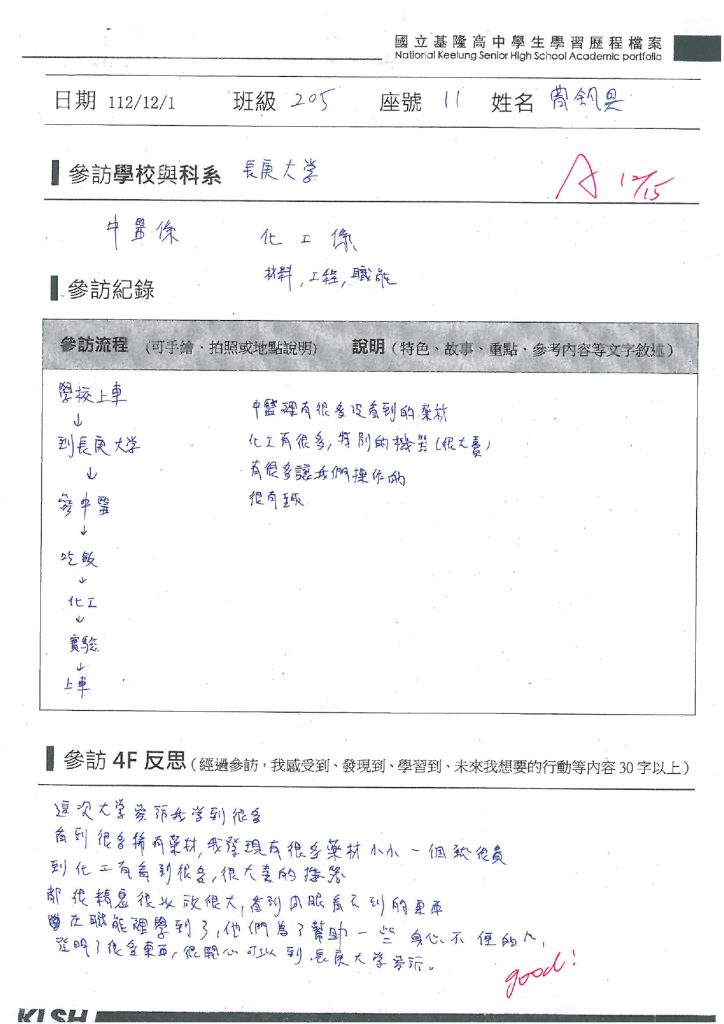 國立基隆高中學生學習歷程檔案
National Keelung Senior High School Academic portfolio
日期 112/12/1 班級 205 座號 11 姓名
參訪學校與科系 長庚大学
A 12/15
中醫係 化工係
材料,工程,職能
參訪紀錄
參訪流程 (可手繪、拍照或地點說明) 說明 (特色、故事、重點、參考內容等文字敘述)
學校上車
↓
到長庚大学
↓
參中醫
↓
吃飯
↓
化工
↓
實驗
↓
上車
中醫裡有很多沒看到的藥材
化工有很多,特別的機器(很大臺)
有很多讓我們操作的
很有趣
參訪 4F 反思 (經過參訪,我感受到、發現到、學習到、未來我想要的行動等內容 30 字以上)
這次大学參訪我学到很多
看到很多稀有藥材,我發現有很多藥材小小一個就很貴
到化工有看到很多,很大臺的機器
都很精密很以放很大,看到肉眼看不到的東西
在職能裡學到了,他們為了幫助一些身心不便的人,
發明了很多東西,很開心可以到長庚大学參訪。
good!
KLSH